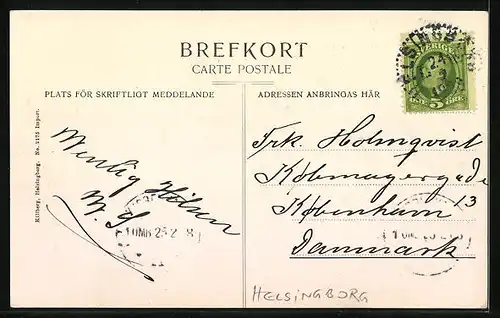 BREFKORT
CARTE POSTALE
PLATS FÖR SKRIFTLIGT MEDDELANDE
ADRESSEN ANBRINGAS HÄR
SVERIGE
5 ÖRE
HELSINGB
Killberg, Helsingborg. No. 2175 Import.
Venlig Hilsen
Frk. Holmqvist
Købmagergade
13
København
Danmark.
HELSINGBORG